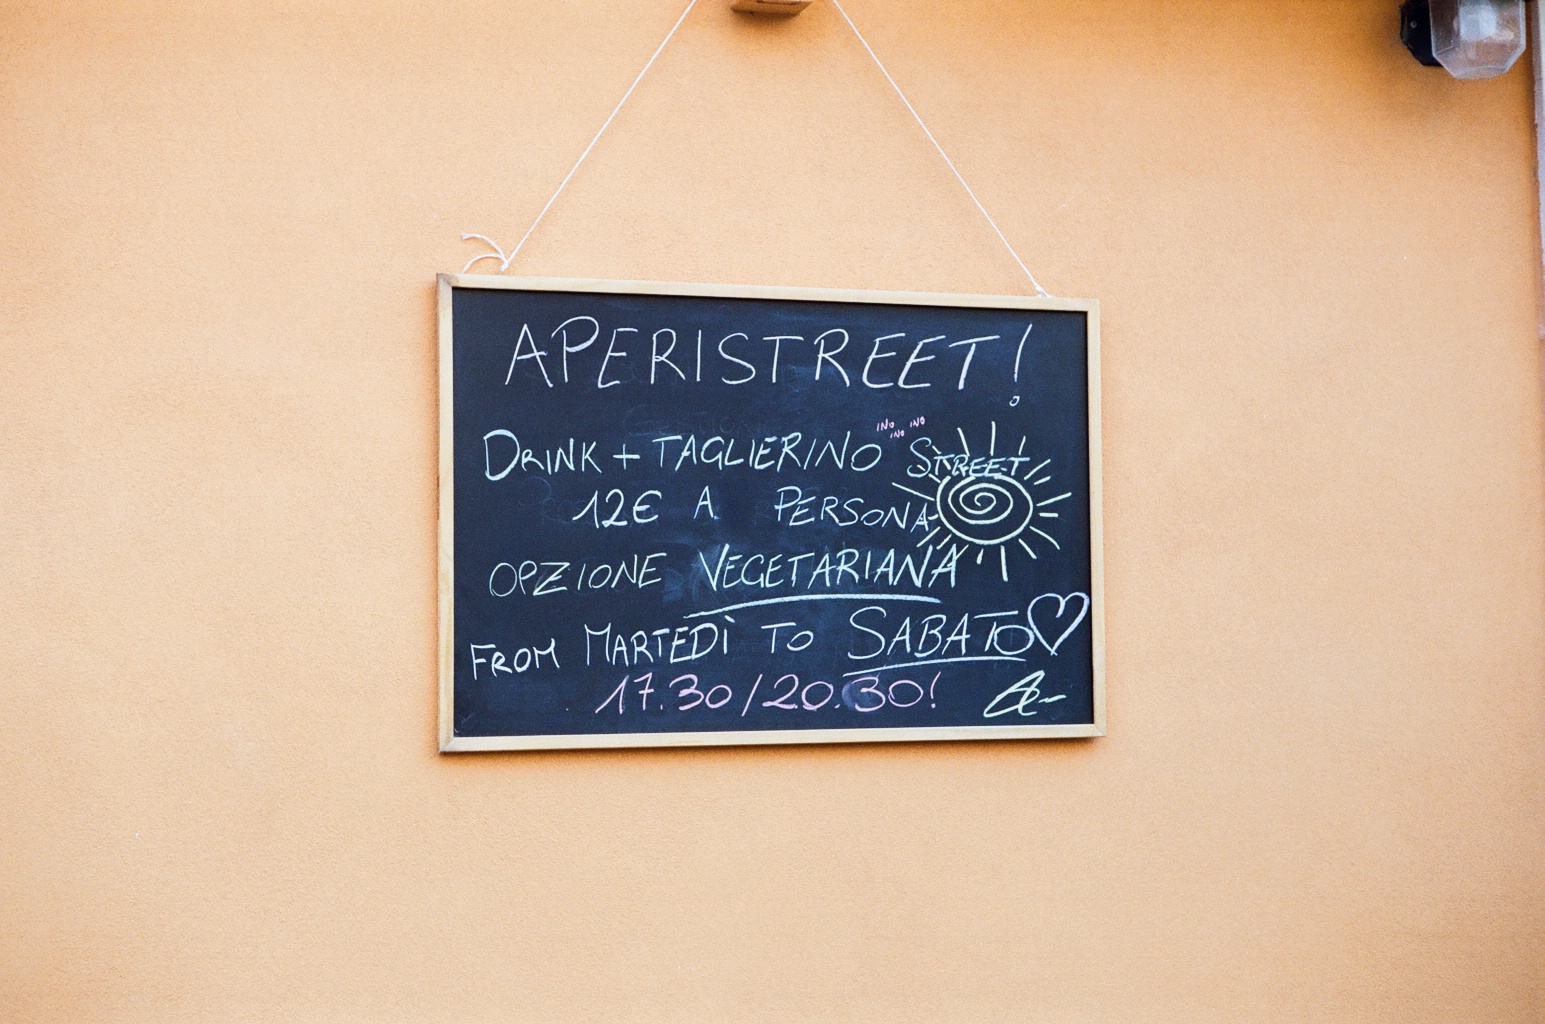 APERISTREET!
DRINK + TAGLIERINO INO INO INO STREET
12€ A PERSONA
OPZIONE VEGETARIANA
FROM MARTEDÌ TO SABATO
17.30/20.30!